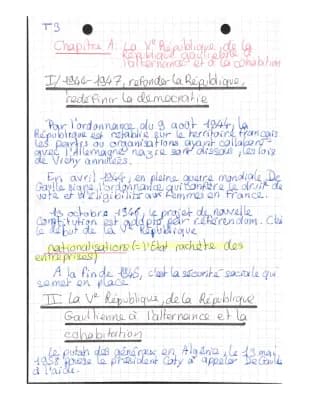 T3
Chapitre 1: La Ve République, de la
République gaullienne à
l'alternance et à la cohabitation
I/ 1944-1947, refonder la République,
redéfinir la démocratie
Par l'ordonnance du 9 août 1944, la
République est rétablie sur le territoire français
les partis ou organisations ayant collaboré
avec l'Allemagne nazie sont dissous, les lois
de Vichy annulées.
En avril 1944, en pleine guerre mondiale, De
Gaulle signe l'ordonnance qui confère le droit de
vote et d'éligibilité aux femmes en France.
13 octobre 1946, le projet de nouvelle
Constitution est adopté par référendum. C'est
le début de la Ve République
nationalisations (= l'État rachète des
entreprises)
A la fin de 1945, c'est la sécurité sociale qui
se met en place
II: La Ve République, de la République
Gaullienne à l'alternance et la
cohabitation
Le putch des généraux en Algérie, le 13 mai
1958 pousse le président Coty à appeler De Gaulle
à l'aide.